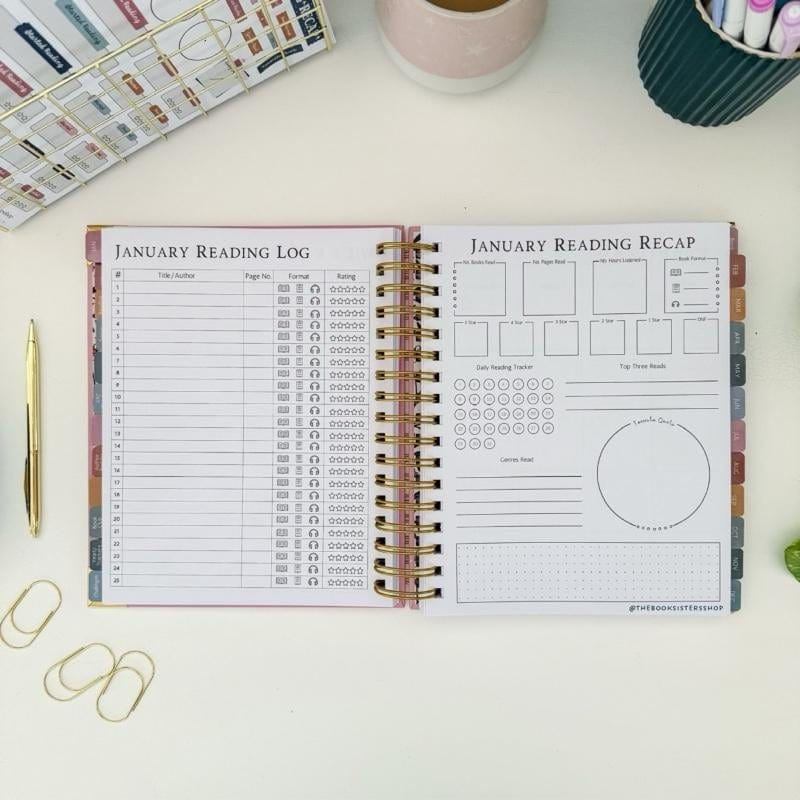 Started Reading
Started Reading
Started Reading
JANUARY READING LOG
# Title/Author Page No. Format Rating
1
2
3
4
5
6
7
8
9
10
11
12
13
14
15
16
17
18
19
20
21
22
23
24
25
JANUARY READING RECAP
No. Books Read No. Pages Read No. Hours Listened Book Format
5 Star 4 Star 3 Star 2 Star 1 Star DNF
Daily Reading Tracker Top Three Reads
1 2 3 4 5 6 7
8 9 10 11 12 13 14
15 16 17 18 19 20 21
22 23 24 25 26 27 28
29 30 31
Favorite Quote
Genres Read
@THEBOOKSISTERSSHOP
FEB
MAR
APR
MAY
JUN
JUL
AUG
SEP
OCT
NOV
DEC